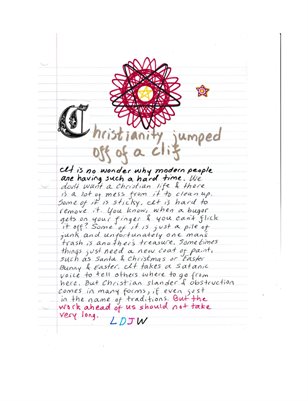 Christianity jumped
off of a clif
It is no wonder why modern people
are having such a hard time. We
don't want a Christian life & there
is a lot of mess from it to clean up.
Some of it is sticky. It is hard to
remove it. You know, when a buger
gets on your finger & you can't flick
it off? Some of it is just a pile of
junk and unfortunately one mans
trash is another's treasure. Sometimes
things just need a new coat of paint,
such as Santa & Christmas or Easter
Bunny & Easter. It takes a satanic
voice to tell others where to go from
here. But Christian slander & obstruction
comes in many forms, if even just
in the name of traditions. But the
work ahead of us should not take
very long.
LDJW